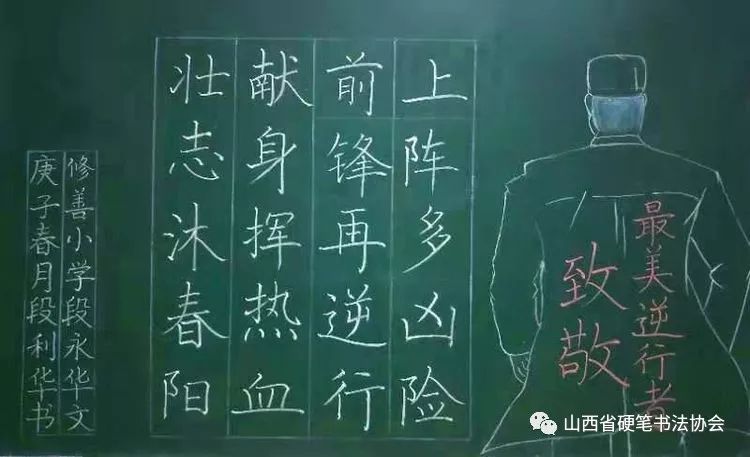 最美逆行者
致敬
上阵多凶险
前锋再逆行
献身挥热血
壮志沐春阳
修善小学段永华文
庚子春月段利华书
山西省硬笔书法协会